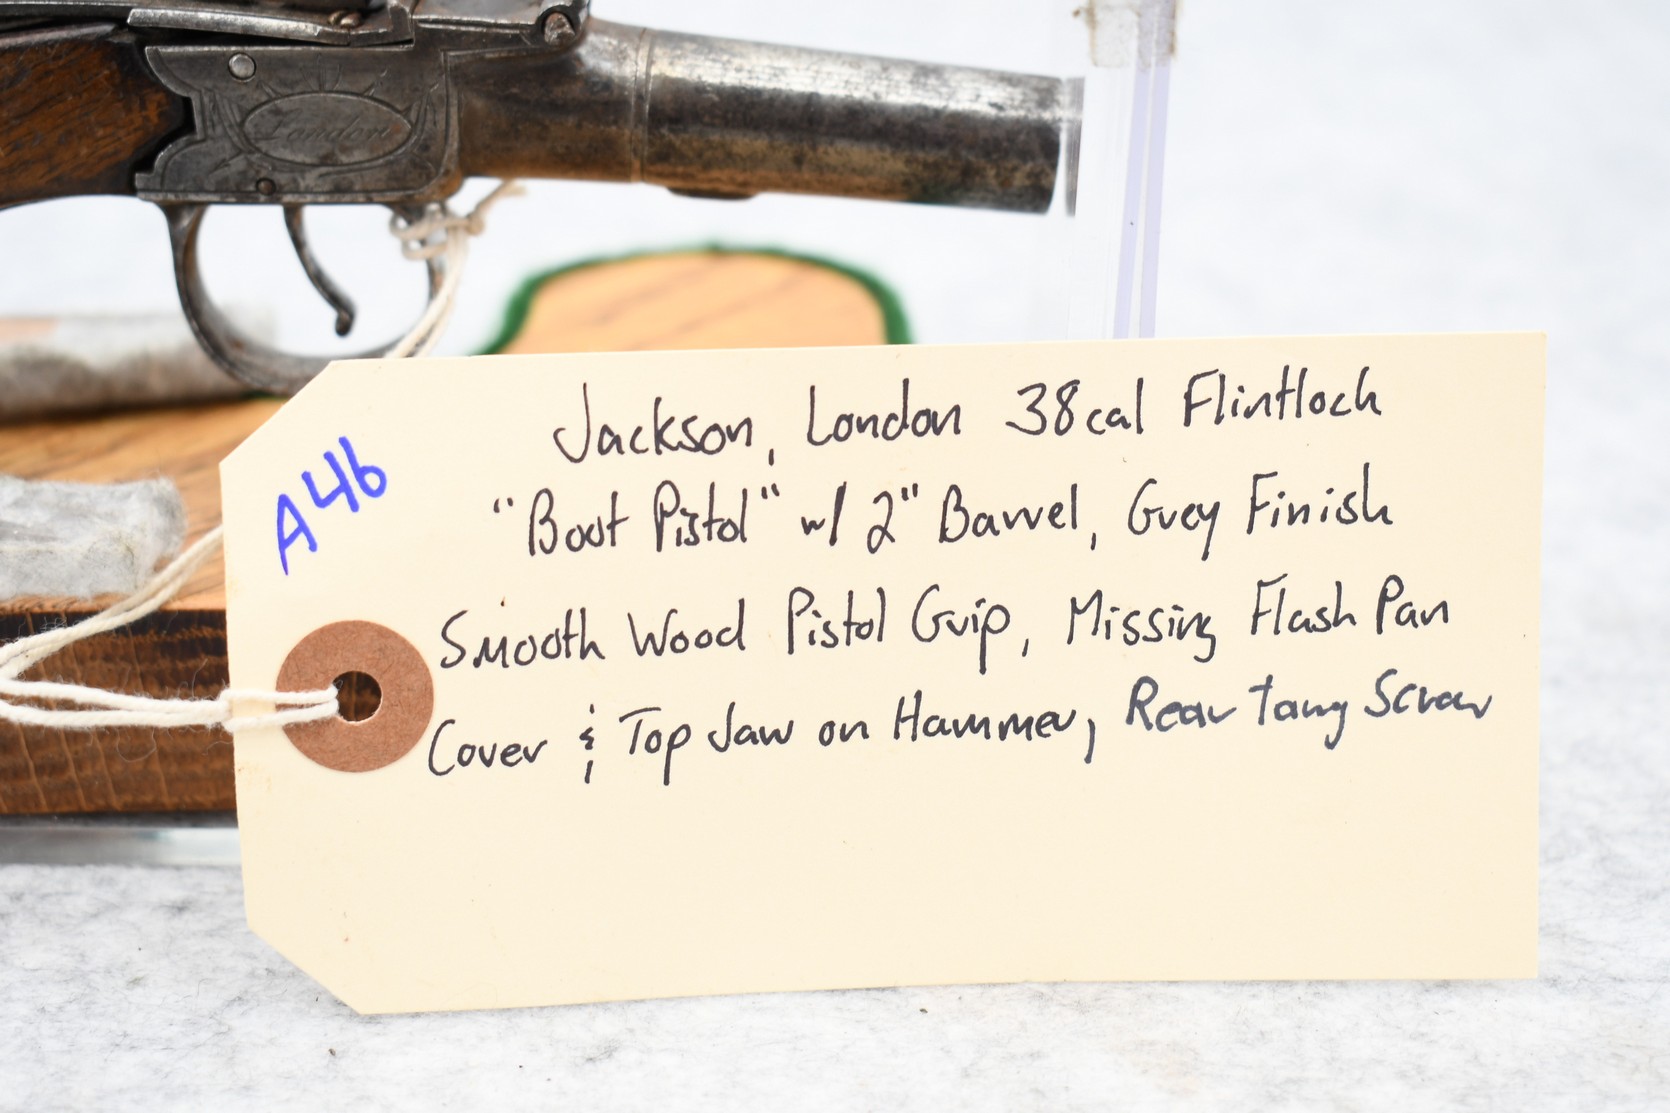 London
A46
Jackson, London 38cal Flintlock
"Boot Pistol" w/ 2" Barrel, Grey Finish
Smooth Wood Pistol Grip, Missing Flash Pan
Cover & Top Jaw on Hammer, Rear Tang Screw